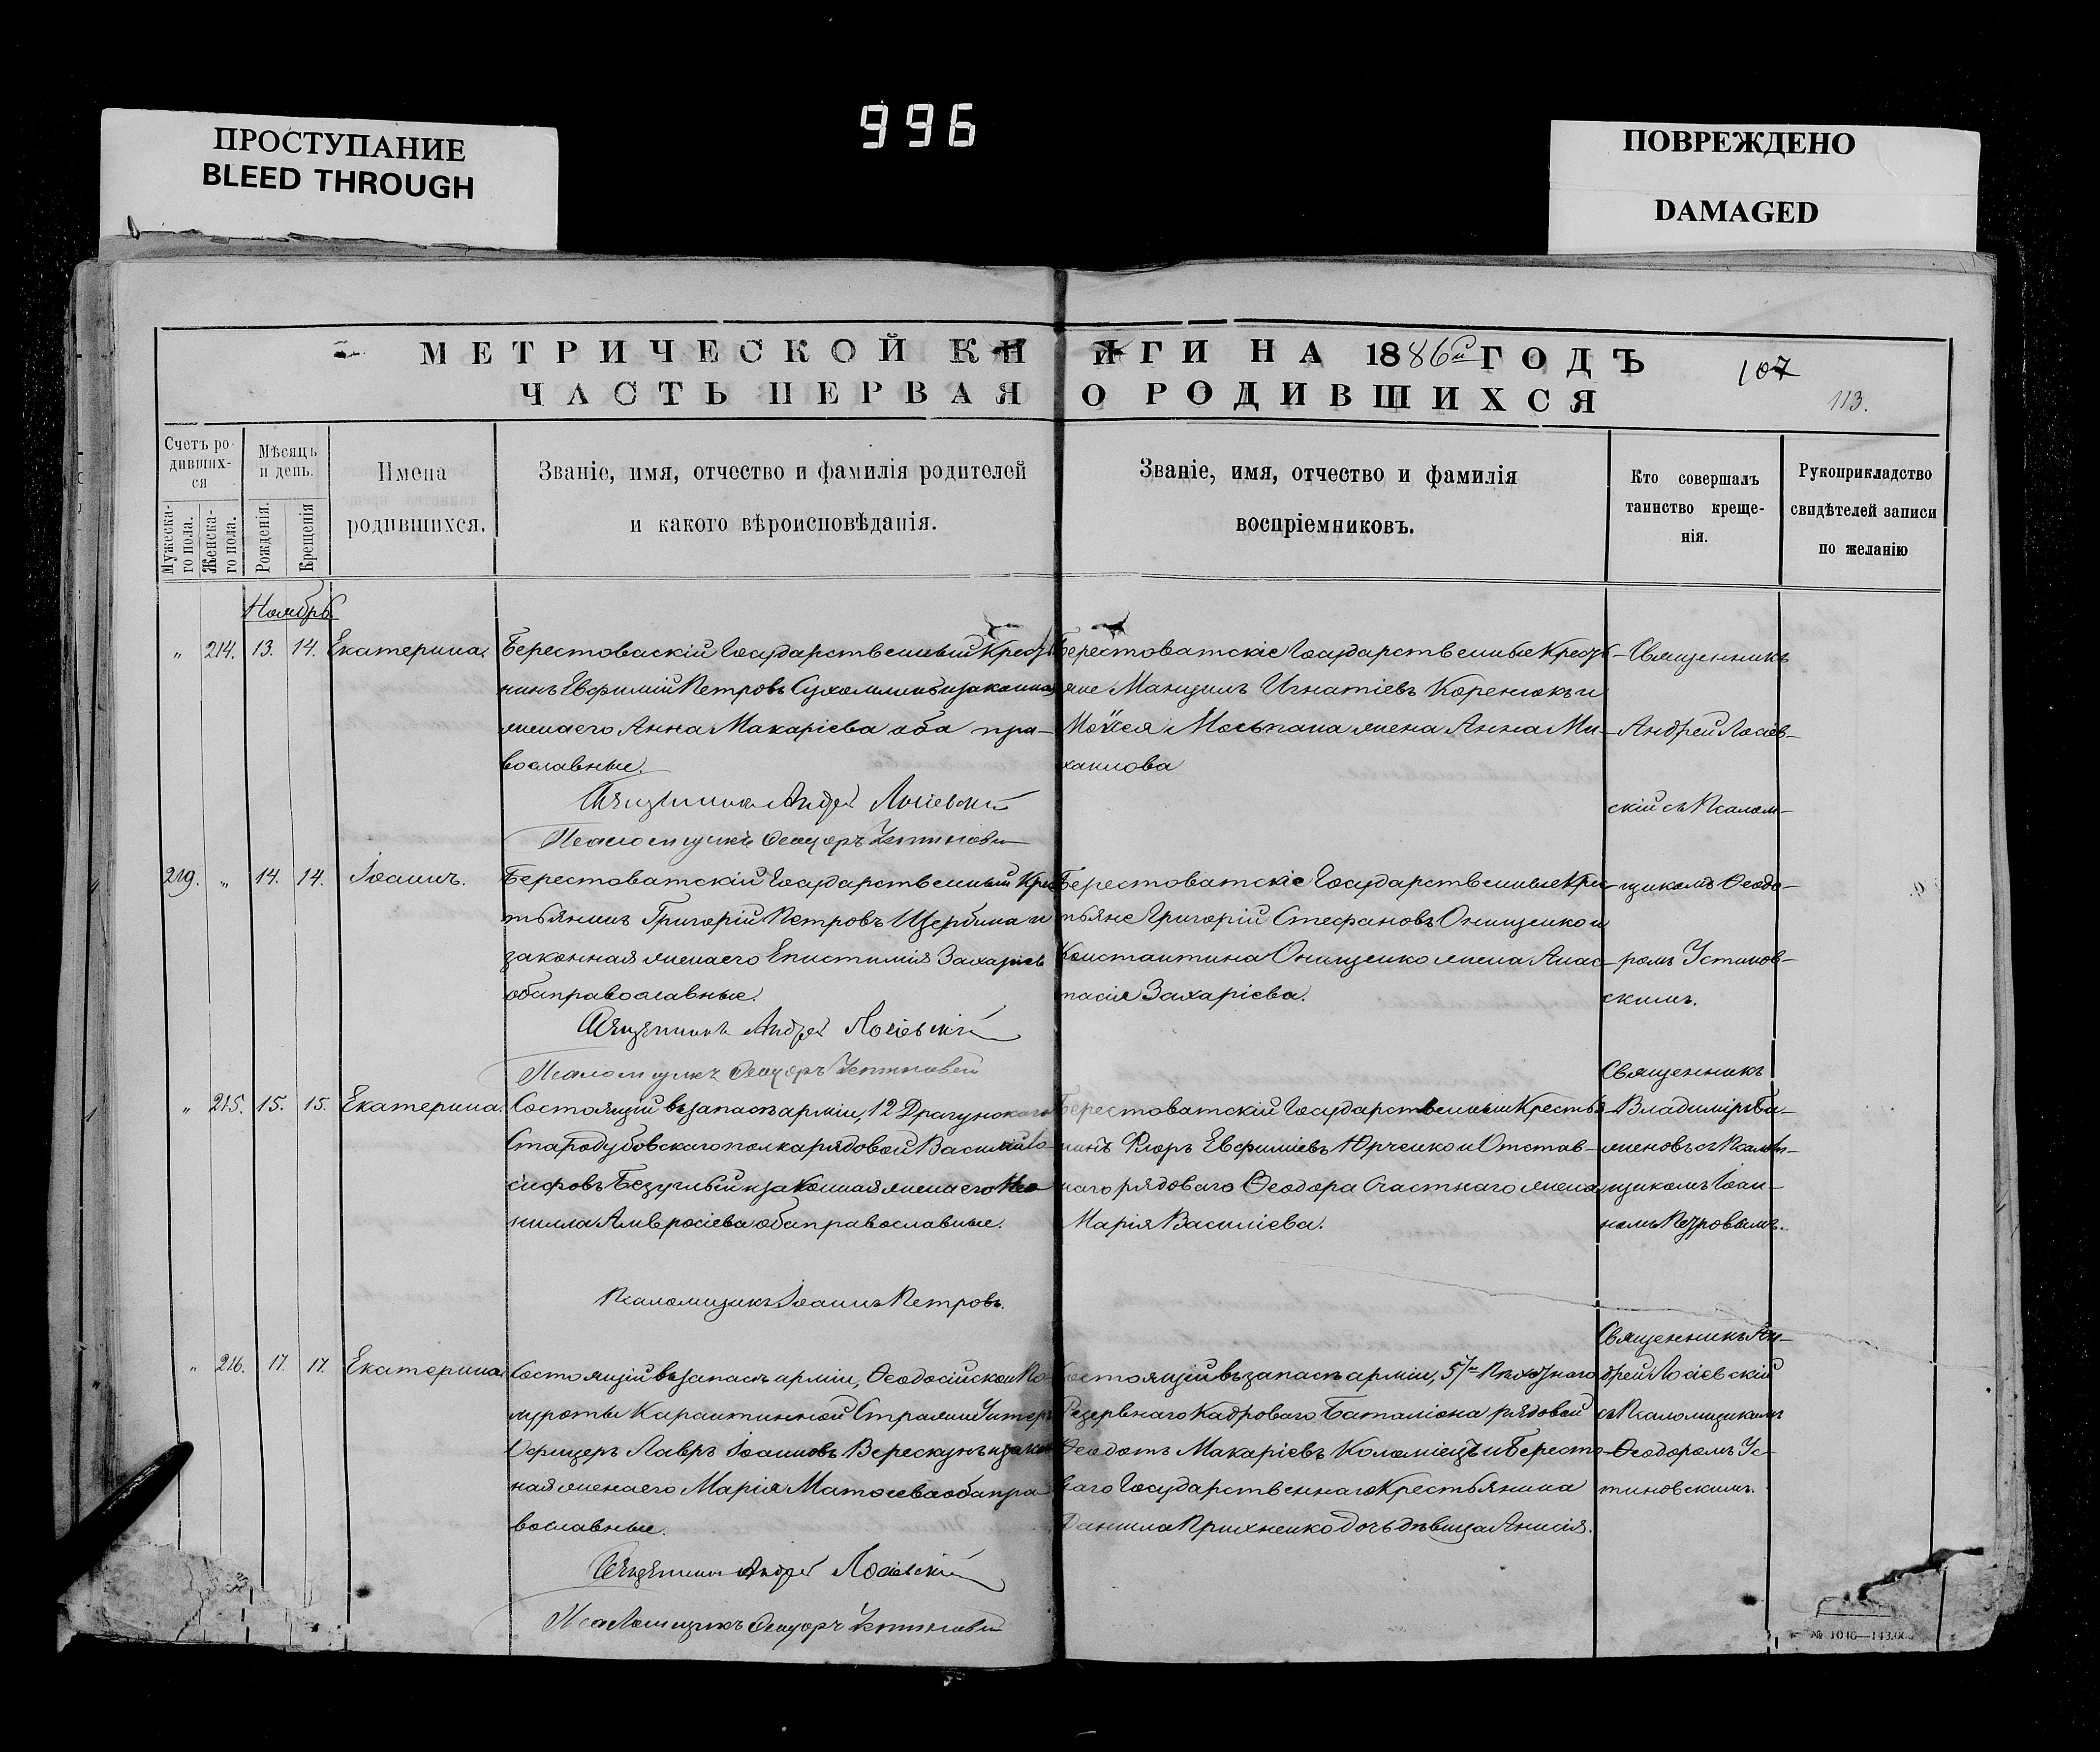 ПРОСТУПАНИЕ
BLEED THROUGH
996
ПОВРЕЖДЕНО
DAMAGED
МЕТРИЧЕСКОЙ КНИГИ НА 1886й ГОДЪ
107
ЧАСТЬ ПЕРВАЯ О РОДИВШИХСЯ
113.
Счетъ ро-
дивших-
ся
Мужеска-
го пола.
Женска-
го пола.
Мѣсяцъ
и день.
Рожденія.
Крещенія
Имена
родившихся.
Званіе, имя, отчество и фамилія родителей
и какого вѣроисповѣданія.
Званіе, имя, отчество и фамилія
воспріемниковъ.
Кто совершалъ
таинство креще-
нія.
Рукоприкладство
свидѣтелей записи
по желанію
Ноябрь
" 214. 13. 14. Екатерина.
Берестоваскій Государственный Кресть
нинъ Евфимій Петровъ Сухомлинъ и законная
жена его Анна Макаріева оба пра-
вославные.
Священникъ Андрей Лосіевскій
Псаломщикъ Ѳеодоръ Устиновскій
Берестоватскіе Государственные Кресть-
яне Мануилъ Игнатіевъ Коренюкъ и
Моѵсея Моспана жена Анна Ми-
хаилова
Священникъ
Андрей Лосіев-
скій съ Псалом-
щикомъ Ѳеодо-
ромъ Устинов-
скимъ.
219. " 14. 14. Іоаннъ.
Берестоватскій Государственный Крес
тьянинъ Григорій Петровъ Щербина и
законная жена его Епистимія Захаріев
оба православные.
Священникъ Андрей Лосіевскій
Псаломщикъ Ѳеодоръ Устиновскій
Берестоватскіе Государственные Крес-
тьяне Григорій Стефановъ Онищенко и
Константина Онищенко жена Анас-
тасія Захаріева.
" 215. 15. 15. Екатерина.
Состоящій въ запасѣ арміи, 12 Драгунскаго
Стародубовскаго полка рядовой Василій Іо-
сифовъ Безуглый и законная жена его Нео
нилла Амвросіева оба православные.
Псаломщикъ Іоаннъ Петровъ.
Берестоватскій Государственный Крестья
нинъ Флоръ Евфиміевъ Юрченко и Отстав-
наго рядоваго Ѳеодора Счастнаго жена
Марія Василіева.
Священникъ
Владиміръ
съ Псалом-
щикомъ Іоан-
номъ Петровымъ.
" 216. 17. 17. Екатерина
Состоящій въ запасѣ арміи, Ѳеодосійской По-
луроты Карантинной Стражи Унтеръ
Офицеръ Лавръ Іоанновъ Верескунъ и закон
ная жена его Марія Матѳеева оба пра-
вославные.
Священникъ Андрей Лосіевскій
Псаломщикъ Ѳеодоръ Устиновскій
Состоящій въ запасѣ арміи, 57го Пѣхотнаго
Резервнаго Кадроваго Баталіона рядовой
Ѳеодотъ Макаріевъ Коломіецъ и Берест
скаго Государственнаго Крестьянина
Даніила Прихненко дочь дѣвица Анисія.
Священникъ Ан-
дрей Лосіевскій
съ Псаломщикомъ
Ѳеодоромъ Ус-
тиновскимъ.